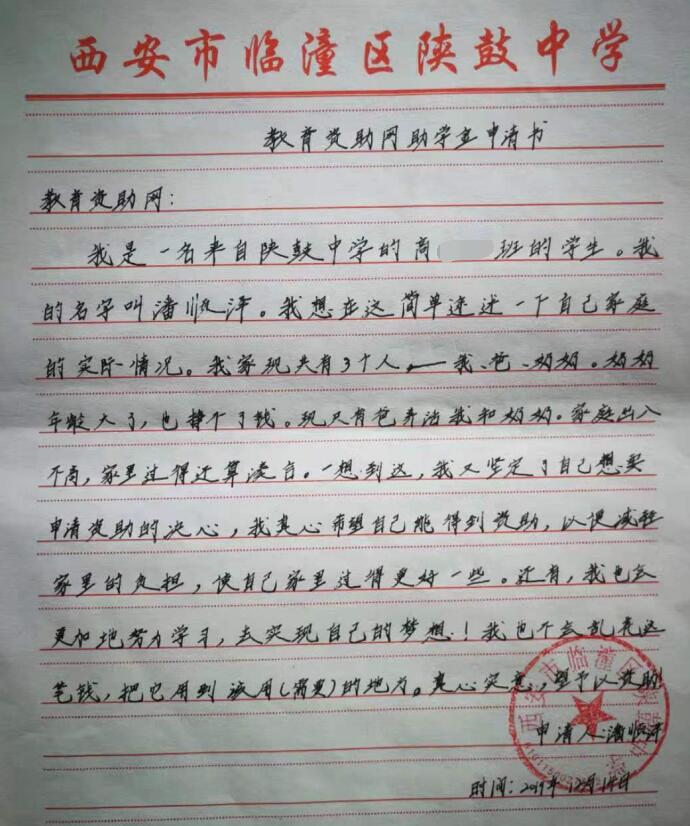 西安市临潼区陕鼓中学
教育资助网助学金申请书
教育资助网：
我是一名来自陕鼓中学的高 班的学生。我
的名字叫潘 泽。我想在这简单途述一下自己家庭
的实际情况。我家现共有3个人——我、爸、奶奶。奶奶
年龄大了，也挣不了钱。现只有爸养活我和奶奶。家庭出入
不高，家里过得还算凑合。一想到这，我又坚定了自己想要
申请资助的决心，我真心希望自己能得到资助，以便减轻
家里的负担，使自己家里过得更好一些。还有，我也会
更加地努力学习，去实现自己的梦想！我也不会乱花这
笔钱，把它用到该用(需要)的地方。真心实意，望予以资助!
申请人：潘 泽
时间：2019年12月14日
西安市临潼区陕鼓中学